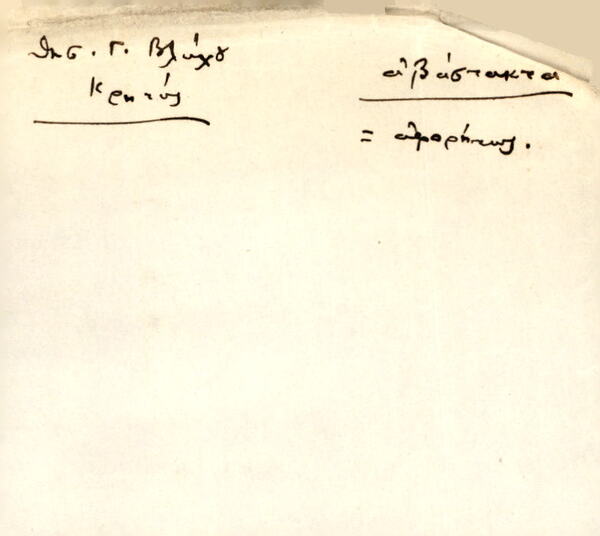 Θησ. Γ. Βλάχου
Κρητός
ἀβάστακτα
= ἀφορήτως.